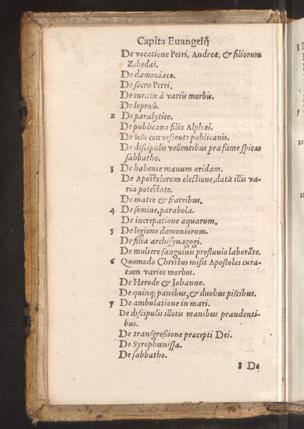 Capita Euangelij
De vocatione Petri, Andreæ, & filiorum
Zebedæi.
De dæmoniaco.
De socru Petri.
De curatis à variis morbis.
De leproso.
2 De paralytico.
De publicano filio Alphæi.
De Iesu conuescente publicanis.
De discipulis vellentibus præ fame spicas
sabbatho.
3 De habente manum aridam.
De Apostolorum electione, datâ illis va-
ria potestate.
De matre & fratribus.
4 De semine, parabola.
De increpatione aquarum.
5 De legione dæmoniorum.
De filia archisynagogi.
De muliere sanguinis profluuio laborāte.
6 Quomodo Christus misit Apostolos cura-
tum varios morbos.
De Herode & Iohanne.
De quinq; panibus, & duobus piscibus.
7 De ambulatione in mari.
De discipulis illotis manibus prandenti-
bus.
De transgressione præcepti Dei.
De Syrophœnissa.
De sabbatho.
8 De